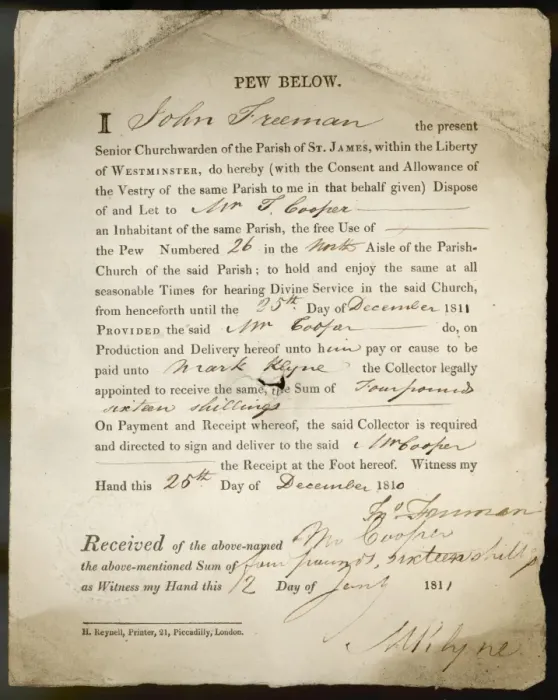 PEW BELOW.
I John Freeman the present
Senior Churchwarden of the Parish of ST. JAMES, within the Liberty
of WESTMINSTER, do hereby (with the Consent and Allowance of
the Vestry of the same Parish to me in that behalf given) Dispose
of and Let to Mr T. Cooper
an Inhabitant of the same Parish, the free Use of
the Pew Numbered 26 in the North Aisle of the Parish-
Church of the said Parish; to hold and enjoy the same at all
seasonable Times for hearing Divine Service in the said Church,
from henceforth until the 25th Day of December 1811
PROVIDED the said Mr Cooper do, on
Production and Delivery hereof unto him pay or cause to be
paid unto Mark Klyne the Collector legally
appointed to receive the same, the Sum of Four pounds
sixteen shillings
On Payment and Receipt whereof, the said Collector is required
and directed to sign and deliver to the said Mr Cooper
the Receipt at the Foot hereof. Witness my
Hand this 25th Day of December 1810
Jno. Freeman
Received of the above-named Mr Cooper
the above-mentioned Sum of four pounds, sixteen shillgs
as Witness my Hand this 12 Day of Jany 1811
M Klyne
H. Reynell, Printer, 21, Piccadilly, London.